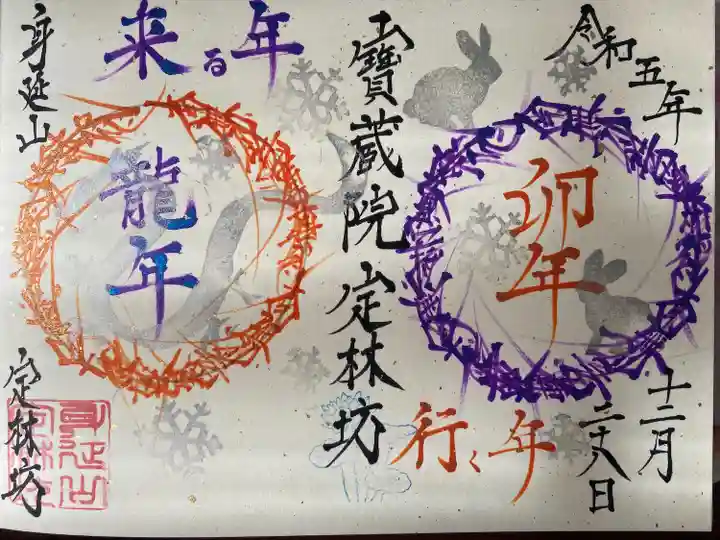 令和五年
十二月
二十八日
卯年
行く年
宝寶蔵院定林坊
来る年
龍年
身延山
定林坊
身延山